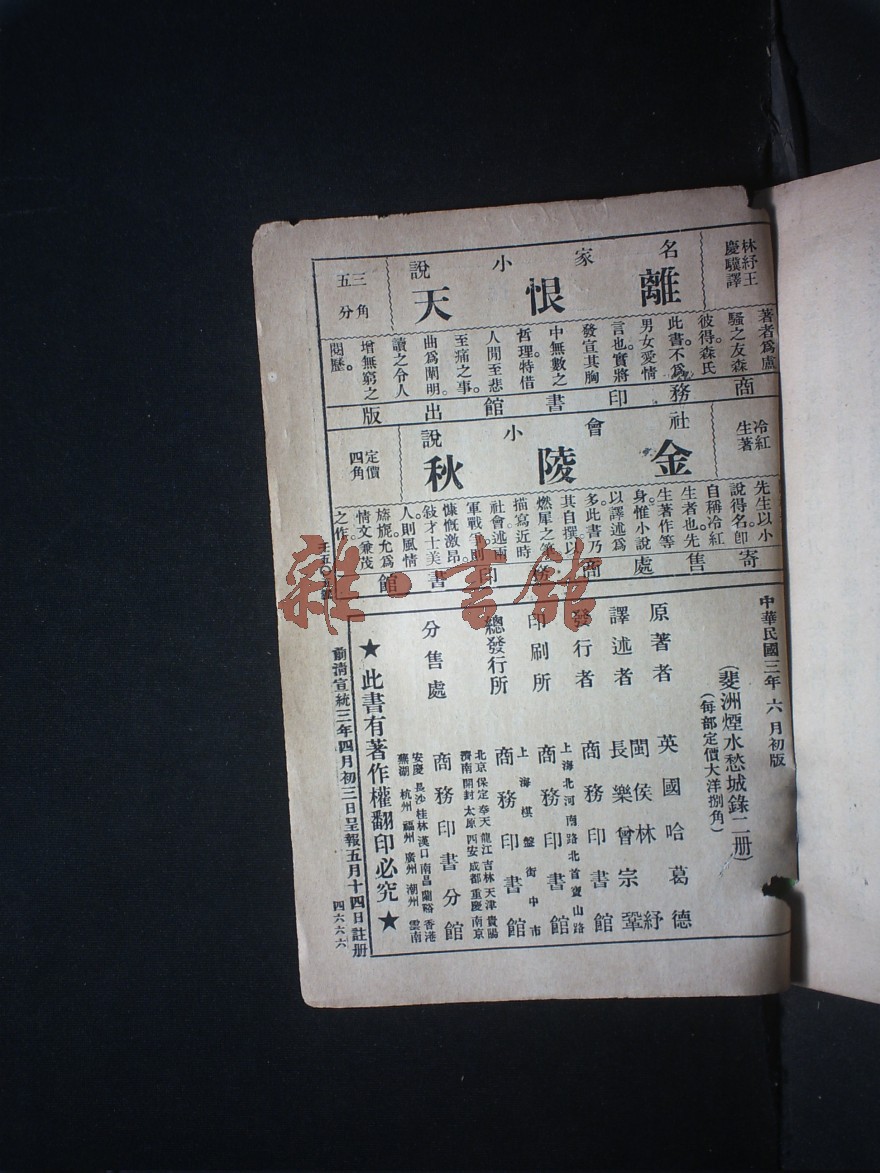 林紓王
慶驥譯
名家小說
離恨天
三角
五分
著者爲盧
騷之友森
彼得森氏
此書不爲
男女愛情
言也實將
發宣其胸
中無數之
哲理。特借
人閒至悲
至痛之事。
曲爲闡明。
讀之令人
增無窮之
閱歷。
商務印書館出版
冷紅
生著
社會小說
金陵秋
定價
四角
先生以小
說得名。卽
自稱冷紅
生者也。先
生著作等
身。惟小說
以譯述爲
多。此書乃
其自撰。以
燃犀之筆
描寫近時
社會。述兩
軍戰爭則
慷慨激昂。
敍才士美
人。則風情
旖旎。允爲
情文兼茂
之作。
寄售處商務印書館
中華民國三年六月初版
(斐洲煙水愁城錄二册)
(每部定價大洋捌角)
原著者 英國哈葛德
譯述者 閩侯林紓
長樂曾宗鞏
發行者 商務印書館
印刷所 上海北河南路北首寶山路
商務印書館
總發行所 上海棋盤街中市
商務印書館
分售處 北京 保定 奉天 龍江 吉林 天津 貴陽
濟南 開封 太原 西安 成都 重慶 南京
商務印書分館
安慶 長沙 桂林 漢口 南昌 蘭谿 香港
蕪湖 杭州 福州 廣州 潮州 雲南
★此書有著作權翻印必究★
前清宣統三年四月初三日呈報五月十四日註册
四六六六
雜·書館